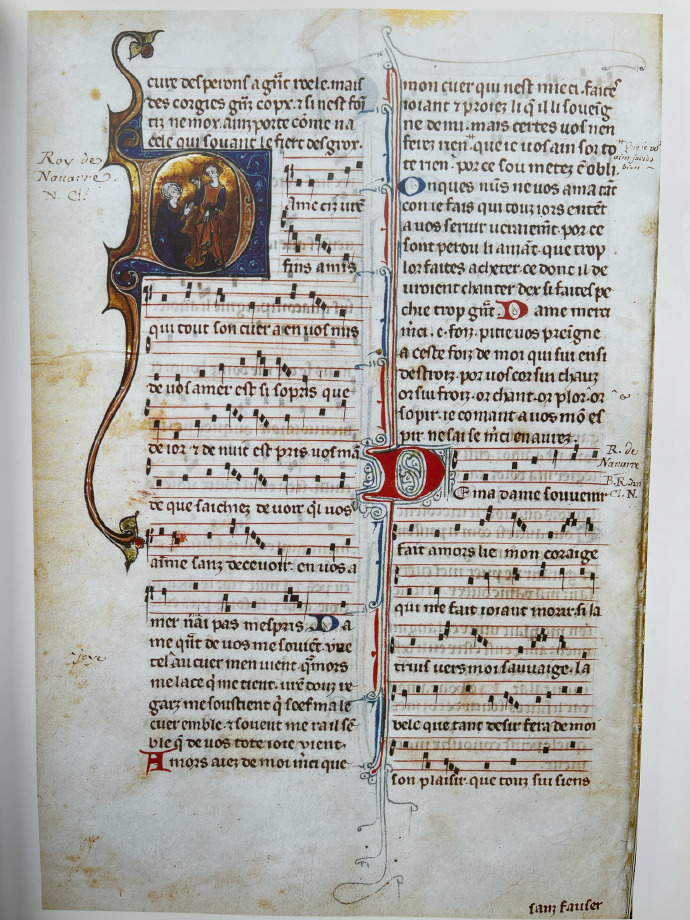 cure desperons a gñt roele. mais
des corgies gñz co px. ⁊ si nest
ne mor. ainz porte cōme na
cele qui souant le fiert des gror.
Roy de
Navarre
N. Cl!
D
Ame cix vr̄e
fins amis
qui tout son cuer a en vos mis
de vos amer est si sopris que
de ior ⁊ de nuit est pris vos mā
de que sachiez de voir q̄i vos
aīme sanz decevoir. en vos a
mer nai pas mespris. Da
me qñt de vos me soviēt. vne
tel au cuer men vient. qmors
me lace q̄ me tient. vr̄e douz re
garz me soustient q̄ soef ma le
cuer emble. ⁊ sovent me ra il sē
ble q̄ de vos tote ioie vient.
Amors aiez de moi m̄ci que
joye
mon cuer qui nest mie ci. faites
ioiant ⁊ proiez li q̄ il li soveig
ne de mi. mais certes vos nen
ferez rien. que ie vos aim sor to
te rien. por ce sou metez ē obli.
Onques nūs ne vos ama tāt
con ie fais qui touz iors entēt
a vos servir veraiemt. por ce
sont perdu li amāt. que trop
lor faites acheter. ce dont il de
vroient chanter. dex si faites pe
chie trop gñt. Dame merci
m̄ci. c. foiz. pitie vos preigne
a ceste foiz de moi qui sui ensi
destroiz. por vos cor sui chauz
or sui froiz. or chant. or plor. or
sopir. ie comant a vos mō es
pir. ne sai se m̄ci en aurez.
R. de
Navarre
Cl. N.
De ma dame souvenir
fait amors lie mon coraige
qui me fait ioiant morir. si la
truis vers moi sauvaige. la
bele que tant desir fera de moi
son plaisir. que touz sui siens
sanz fauser